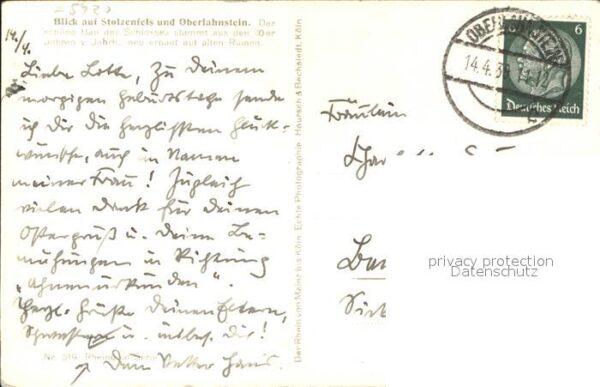 =5920
Blick auf Stolzenfels und Oberlahnstein. Der
schöne Bau des Schlosses stammt aus den 40er
Jahren v. Jahrh. neu erbaut auf alten Ruinen.
14./4.
Liebe Lotte, zu Deinem
morgigen Geburtstage sende
ich Dir die herzlichsten Glück-
wünsche, auch im Namen
meiner Frau! Zugleich
vielen Dank für Deinen
Ostergruß u. Deine Be-
mühungen in Richtung
"Ahnenurkunden".
Herzl. Grüße Deinen Eltern,
Schwester u. insbes. Dir!
Dein Vetter Hans.
Nr. 519
Der Rhein von Mainz bis Köln. Echte Photographie. Hoursch & Bechstedt, Köln
OBERLAHNSTEIN
14.4.3
6
Deutsches Reich
Fräulein
Char
privacy protection
Datenschutz